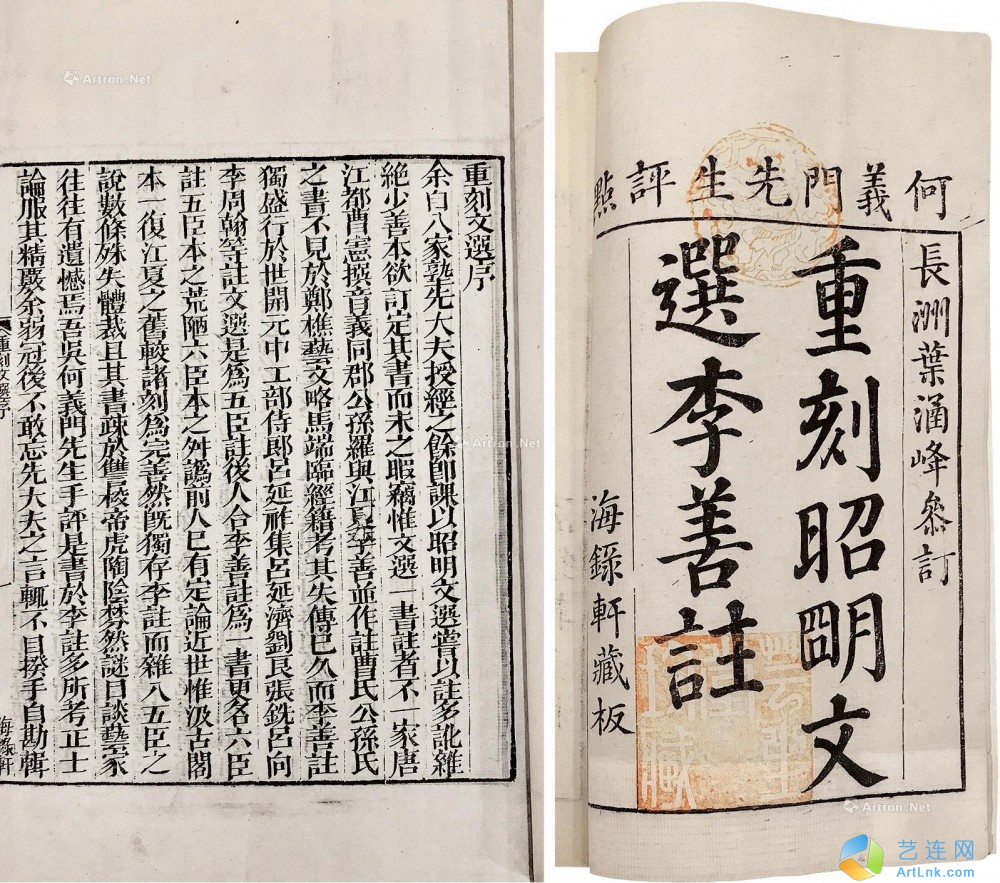 重刻文選序
余自入家塾先大夫授經之餘即課以昭明文選嘗以註多訛雜
絶少善本欲訂定其書而未之暇竊惟文選一書註者不一家唐
江都曹憲撰音義同郡公孫羅與江夏李善並作註曹氏公孫氏
之書不見於鄭樵藝文略馬端臨經籍考其失傳已久而李善註
獨盛行於世開元中工部侍郎呂延祚集呂延濟劉良張銑呂向
李周翰等註文選是為五臣註後人合李善註為一書更名六臣
註五臣本之荒陋六臣本之舛譌前人已有定論近世惟汲古閣
本一復江夏之舊較諸刻為完善然既獨存李註而雜入五臣之
說數條殊失體裁且其書疎於讐校帝虎陶陰棼然謎目談藝家
往往有遺憾焉吾吳何義門先生手評是書於李註多所考正士
論服其精覈余弱冠後不敢忘先大夫之言輒不自揆手自勘輯
重刻文選序
海録軒
何義門先生評點
長洲葉涵峰叅訂
重刻昭明文
選李善註
海錄軒藏板
Artron.Net
Artron.Net
Artron.Net
Artron.Net
艺连网
ArtLnk.com